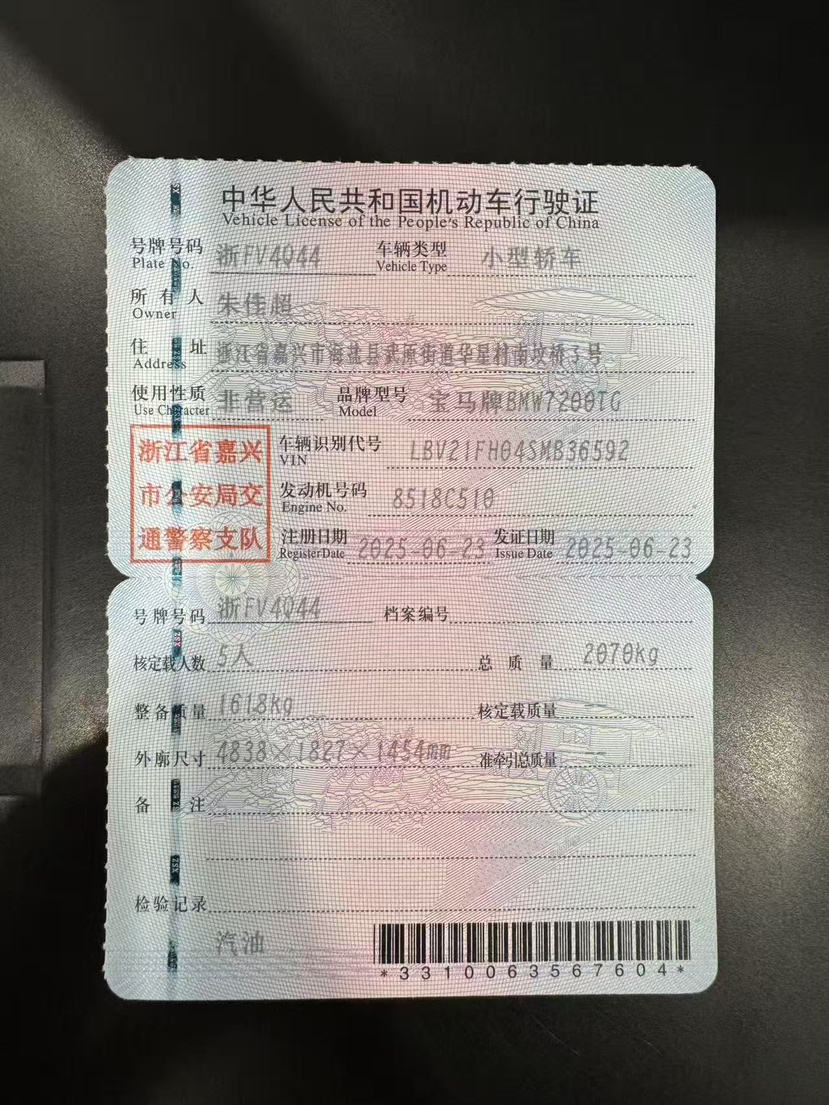 中华人民共和国机动车行驶证
Vehicle License of the People's Republic of China
号牌号码 浙FV4Q44 车辆类型 小型轿车
Plate No. Vehicle Type
所有人 朱佳超
Owner
住址 浙江省嘉兴市海盐县武原街道华星村南坟桥3号
Address
使用性质 非营运 品牌型号 宝马牌BMW7200TG
Use Character Model
浙江省嘉兴
市公安局交
通警察支队
车辆识别代号 LBV21FH04SMB36592
VIN
发动机号码 8518C510
Engine No.
注册日期 2025-06-23 发证日期 2025-06-23
Register Date Issue Date
号牌号码 浙FV4Q44 档案编号
核定载人数 5人 总质量 2070kg
整备质量 1618kg 核定载质量 --
外廓尺寸 4838×1827×1454mm 准牵引总质量 --
备注
检验记录
汽油
*3310063567604*